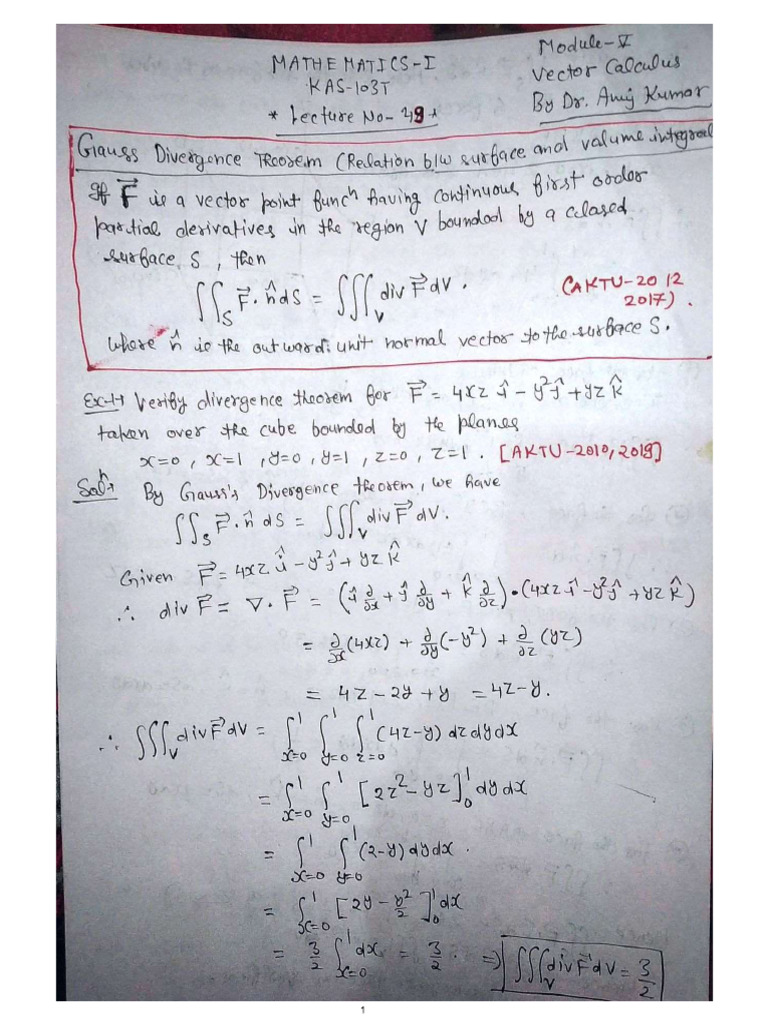 MATHEMATICS-I
KAS-103T
* Lecture No- 49 *
Module-V
Vector Calculus
By Dr. Anuj Kumar
Gauss Divergence Theorem (Relation b/w surface and volume integral
If F⃗ is a vector point funcⁿ having continuous first order
partial derivatives in the region V bounded by a closed
surface S, then
∬_S F⃗·n̂ dS = ∭_V div F⃗ dV.
(AKTU-2012
2017).
where n̂ is the outward unit normal vector to the surface S.
Ex-1→ Verify divergence theorem for F⃗ = 4xz î - y² ĵ + yz k̂
taken over the cube bounded by the planes
x=0, x=1, y=0, y=1, z=0, z=1. [AKTU-2010, 2018]
Solⁿ→ By Gauss's Divergence theorem, we have
∬_S F⃗·n̂ dS = ∭_V div F⃗ dV.
Given F⃗ = 4xz î - y² ĵ + yz k̂
∴ div F⃗ = ∇·F⃗ = (î ∂/∂x + ĵ ∂/∂y + k̂ ∂/∂z)·(4xz î - y² ĵ + yz k̂)
= ∂/∂x (4xz) + ∂/∂y (-y²) + ∂/∂z (yz)
= 4z - 2y + y = 4z - y.
∴ ∭_V div F⃗ dV = ∫_{x=0}^1 ∫_{y=0}^1 ∫_{z=0}^1 (4z-y) dz dy dx
= ∫_{x=0}^1 ∫_{y=0}^1 [2z² - yz]_0^1 dy dx
= ∫_{x=0}^1 ∫_{y=0}^1 (2-y) dy dx.
= ∫_{x=0}^1 [2y - y²/2]_0^1 dx
= 3/2 ∫_{x=0}^1 dx = 3/2. ⇒ ∭_V div F⃗ dV = 3/2
1